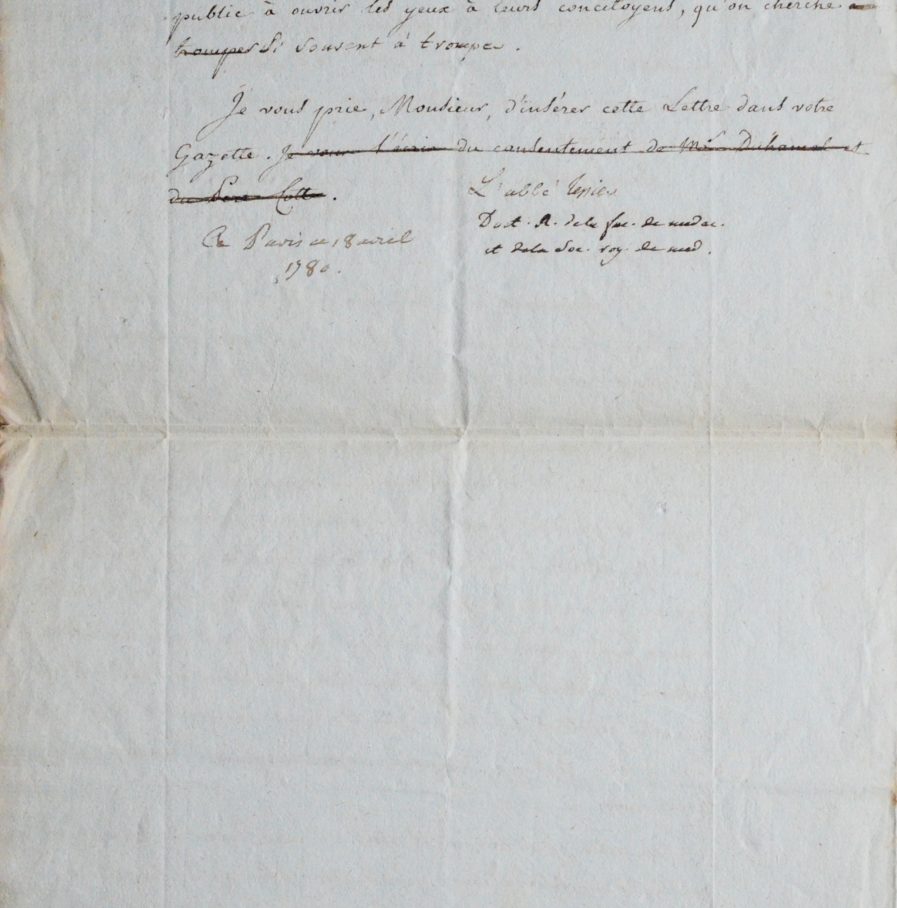 public à ouvrir les yeux à leurs concitoyens, qu'on cherche a
tromper si souvent à tromper.
Je vous prie, Monsieur, d'insérer cette Lettre dans votre
Gazette. Je vous l'écris du consentement de Mr. Duhamel et
du Pere Cotte.
L'abbé Tessier
Doct. R. de la fac. de medec.
et de la Soc. roy. de med.
a Paris ce 18 avril
1780.